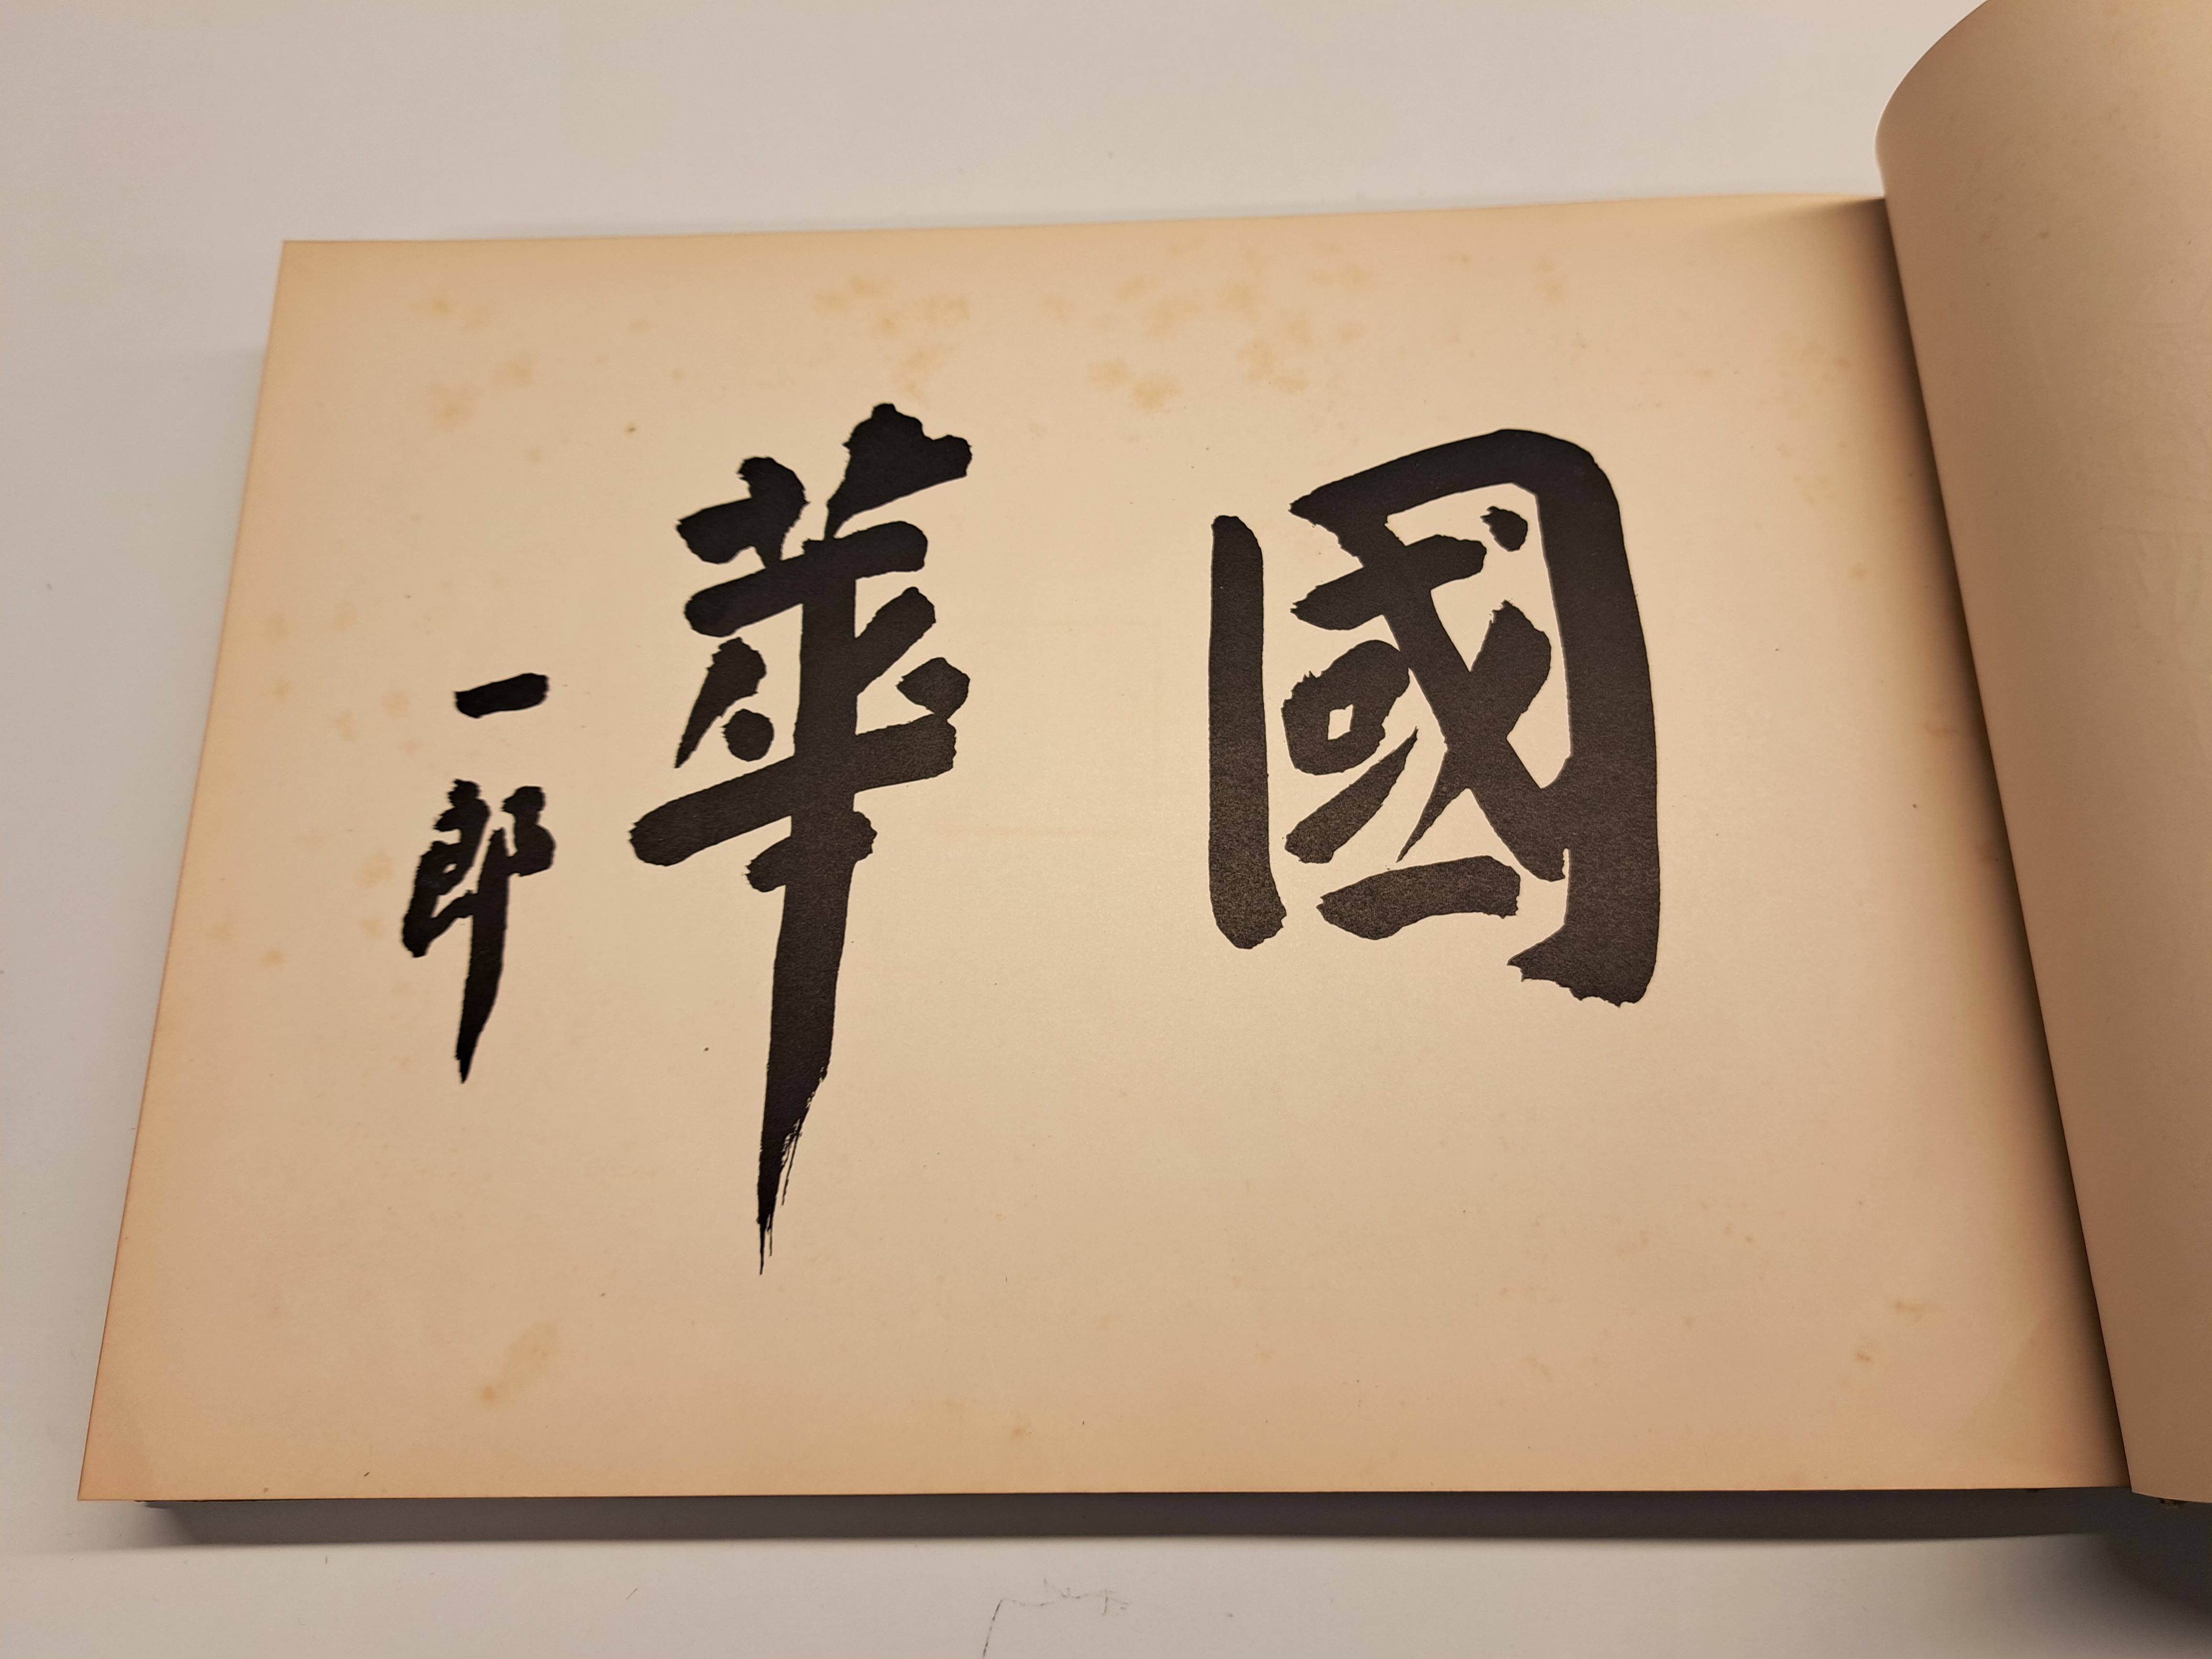 國華
一郎